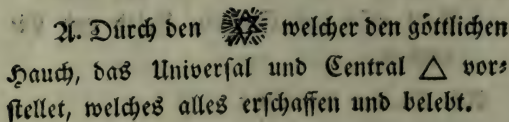 A. Durch den ✡ welcher den göttlichen
Hauch, das Universal und Central △ vor⸗
stellet, welches alles erschaffen und belebt.